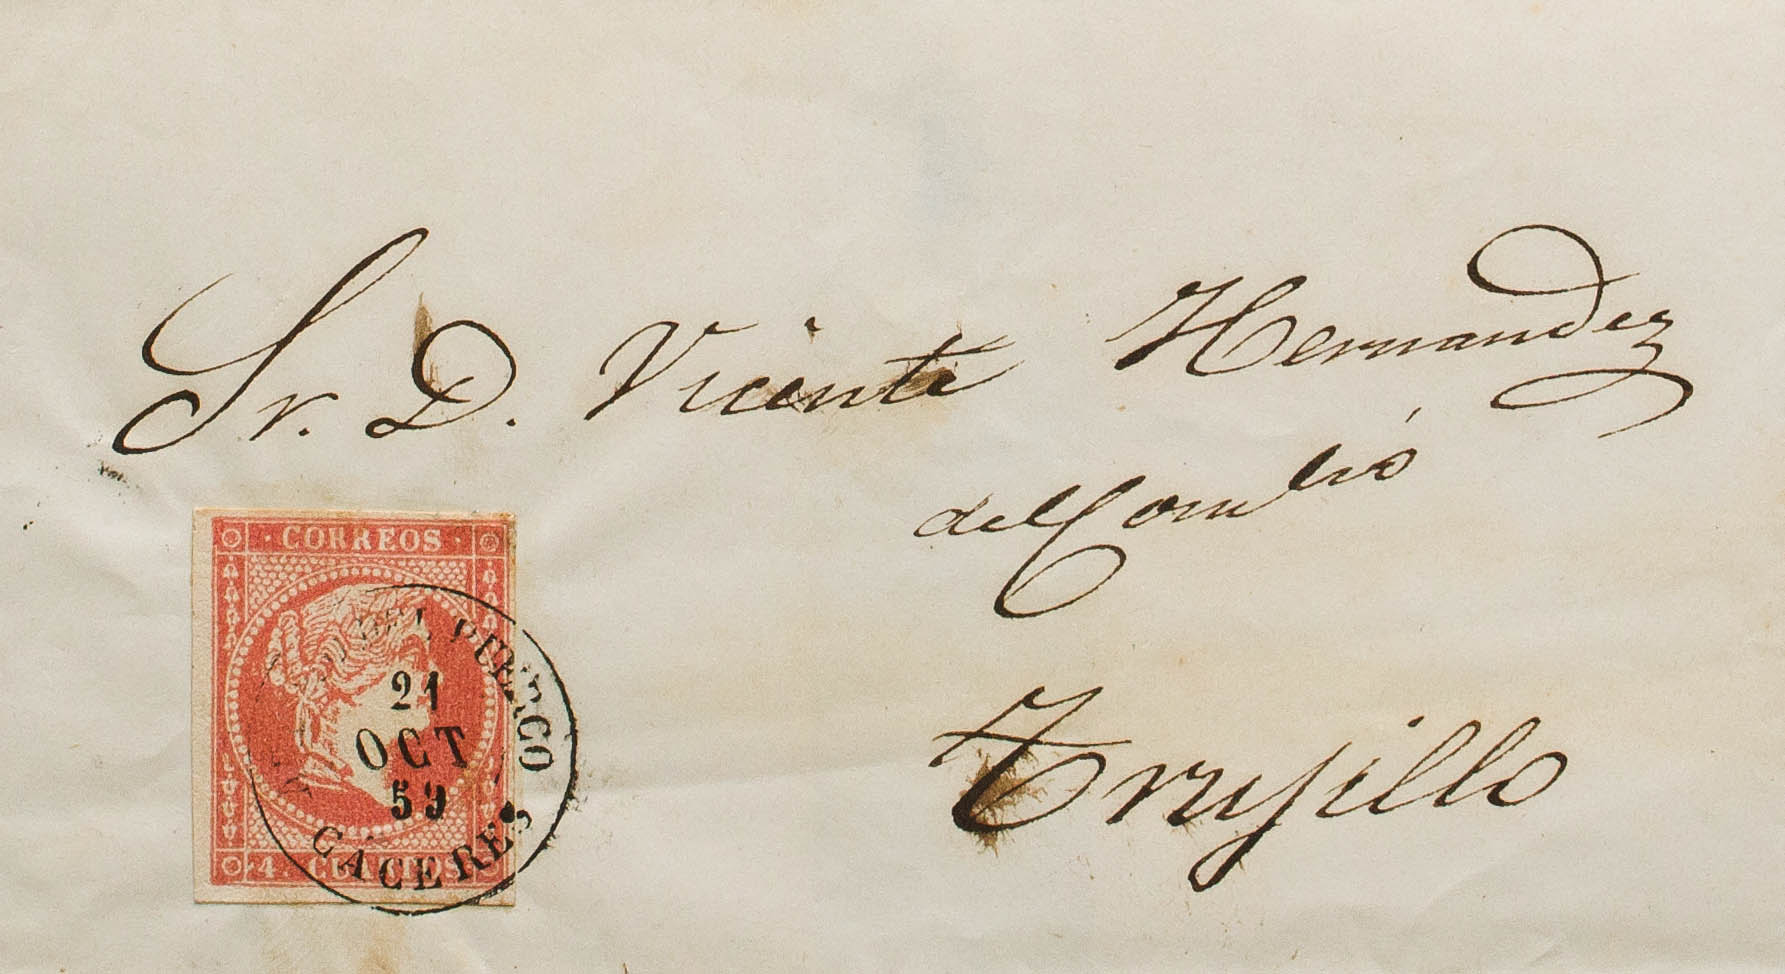 Sr. D. Vicente Hernandez
del Comercio
Trujillo
CORREOS
DEL PUERCO
21
OCT
59
CACERES
4. CUARTOS